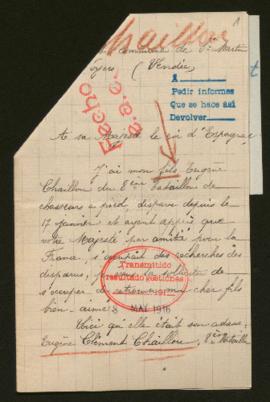 Chaillou
1
Commune de St Martin
(Vendée)
1
Pedir informes
Que se hace así
Devolver
Hecho
a sa Majesté le roi d'Espagne,
J'ai mon fils Eugène
Chaillou du 8ème Bataillon de
chasseurs à pied disparu depuis le
17 janvier et ayant appris que
votre Majesté par amitié pour la
France, s'occupait des recherches des
disparus, de
s'occuper de retrouver mon cher fils
bien aimé.
Transmitido
resultado gestiones
8 MAY 1916
Voici qu'elle était son adresse
Eugène Clément Chaillou, 8ème Bataillon